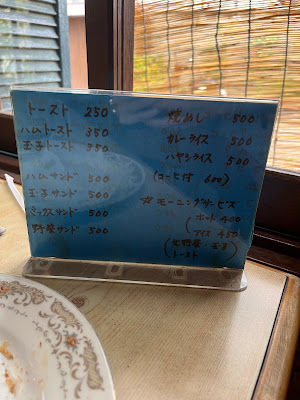 トースト 250
ハムトースト 350
玉子トースト 350
ハムサンド 500
玉子サンド 500
ミックスサンド 500
野菜サンド 500
焼めし 500
カレーライス 500
ハヤシライス 500
(コーヒ付 600)
☆ モーニングサービス
(ホット 400
アイス 450
(野菜・玉子)
トースト